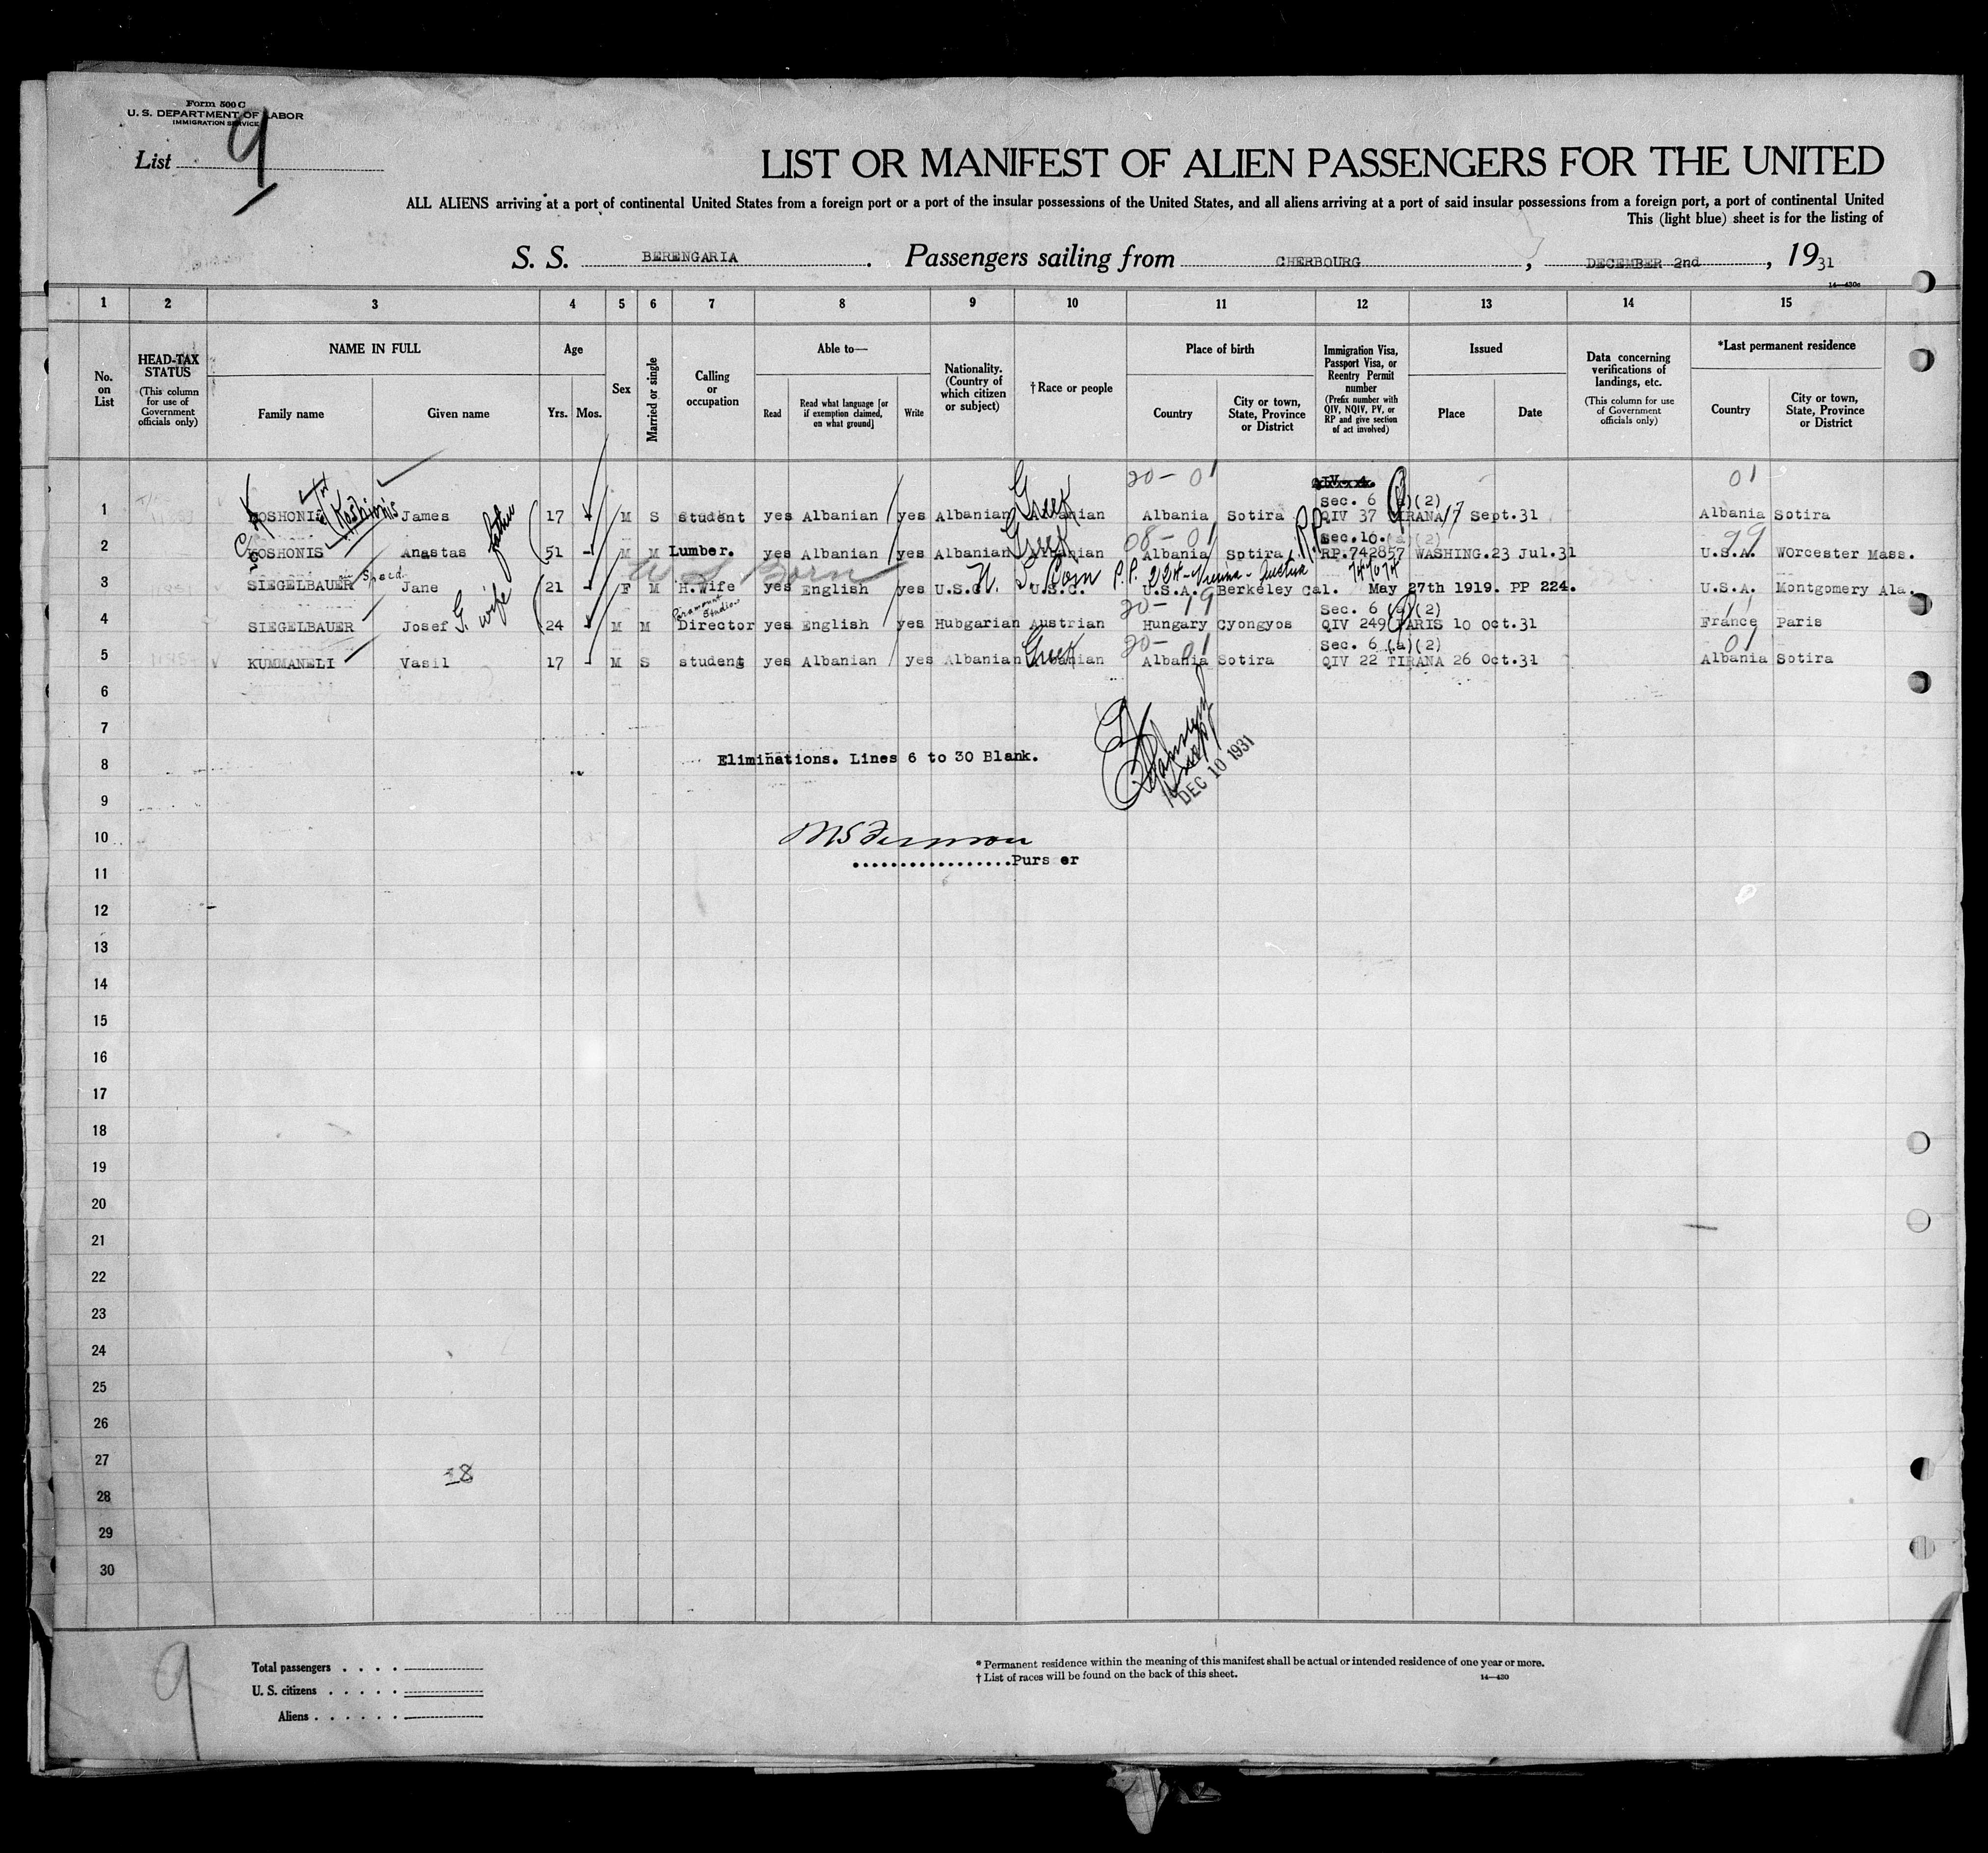 Form 500 C
U. S. DEPARTMENT OF LABOR
IMMIGRATION SERVICE
List 9
LIST OR MANIFEST OF ALIEN PASSENGERS FOR THE UNITED
ALL ALIENS arriving at a port of continental United States from a foreign port or a port of the insular possessions of the United States, and all aliens arriving at a port of said insular possessions from a foreign port, a port of continental United
This (light blue) sheet is for the listing of
S. S. BERENGARIA. Passengers sailing from CHERBOURG, DECEMBER 2nd, 1931
14—430c
1 2 3 4 5 6 7 8 9 10 11 12 13 14 15
No. on List
HEAD-TAX STATUS (This column for use of Government officials only)
NAME IN FULL Family name Given name
Age Yrs. Mos.
Sex
Married or single
Calling or occupation
Able to— Read Read what language [or if exemption claimed, on what ground] Write
Nationality. (Country of which citizen or subject)
† Race or people
Place of birth Country City or town, State, Province or District
Immigration Visa, Passport Visa, or Reentry Permit number (Prefix number with QIV, NQIV, PV, or RP and give section of act involved)
Issued Place Date
Data concerning verifications of landings, etc. (This column for use of Government officials only)
*Last permanent residence Country City or town, State, Province or District
20-01 01
Sec. 6 (a)(2)
1 KOSHONIS Koshonis James 17 - M S student yes Albanian yes Albanian Greek Albania Sotira QIV 37 TIRANA 17 Sept.31 Albania Sotira
father 08-01 Sec.10.(a)(2) 99
2 KOSHONIS Anastas 51 - M M Lumber. yes Albanian yes Albanian Greek Albania Sotira P.P. RP.742857 WASHING.23 Jul.31 U.S.A. Worcester Mass.
U S Born U. S. Born P.P. 224-Vienna-Austria
3 SIEGELBAUER Jane G. wife 21 - F M H.Wife yes English yes U.S.C. U.S.C. U.S.A. Berkeley Cal. May 27th 1919. PP 224. U.S.A. Montgomery Ala.
Paramount Studios 20-19 Sec. 6 (a)(2)
4 SIEGELBAUER Josef 24 - M M Director yes English yes Hubgarian Austrian Hungary Gyongyos QIV 249 PARIS 10 Oct.31 France Paris
20-01 Sec. 6 (a)(2) 01
5 KUMMANELI Vasil 17 - M S student yes Albanian yes Albanian Greek Albania Sotira QIV 22 TIRANA 26 Oct.31 Albania Sotira
6
7
8 Eliminations. Lines 6 to 30 Blank.
DEC 10 1931
9
10
Purser
11
12
13
14
15
16
17
18
19
20
21
22
23
24
25
26
27
28
29
30
9
Total passengers
U. S. citizens
Aliens
* Permanent residence within the meaning of this manifest shall be actual or intended residence of one year or more.
† List of races will be found on the back of this sheet.
14—430